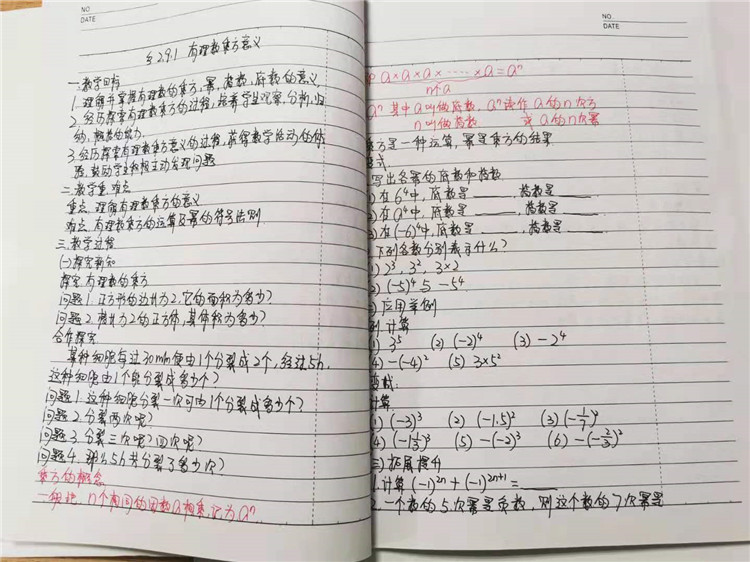 NO.
DATE
§2.9.1 有理数乘方意义
一.教学目标
1.理解并掌握有理数的乘方,幂,指数,底数的意义,
2.经历探索有理数乘方的过程,培养学生观察,分析,归
纳,概括的能力.
3.经历探索有理数乘方意义的过程,获得数学活动的体
验,鼓励学生积极主动发现问题
二.教学重.难点
重点.理解有理数乘方的意义
难点.有理数乘方的运算及幂的符号法则
三.教学过程
(一)探究新知
探究.有理数的乘方
问题1.正方形的边长为2,它的面积为多少?
问题2.棱长为2的正方体,其体积为多少?
合作探究
某种细胞每过30min便由1个分裂成2个,经过5h,
这种细胞由1个能分裂成多少个?
问题1.这种细胞分裂一次可由1个分裂成多少个?
问题2.分裂两次呢?
问题3.分裂三次呢?四次呢?
问题4.那么5h共分裂了多少次?
乘方的概念
一般地,n个相同的因数a相乘,记为aⁿ,
NO.
DATE
a×a×a×……×a=aⁿ
n个a
aⁿ 其中a叫做底数,aⁿ读作a的n次方
n叫做指数 或a的n次幂
乘方是一种运算,幂是乘方的结果
式
写出各幂的底数和指数
)在6⁴中,底数是____,指数是____
)在a⁴中,底数是____,指数是____
)在(-6)⁴中,底数是____,指数是____
下列各数分别表示什么?
) 2³, 3², 3×2
) (-5)⁴与-5⁴
)应用举例
例.计算
) 3⁵ (2) (-2)⁴ (3) -2⁴
4) -(-4)² (5) 3×5²
变式:
计算
1) (-3)³ (2) (-1.5)² (3) (-1/7)²
(4) (-1⅓)³ (5) -(-2)³ (6) -(-2/3)²
三)拓展提升
1.计算(-1)²ⁿ+(-1)²ⁿ⁺¹=____
2.一个数的5次幂是负数,则这个数的7次幂是